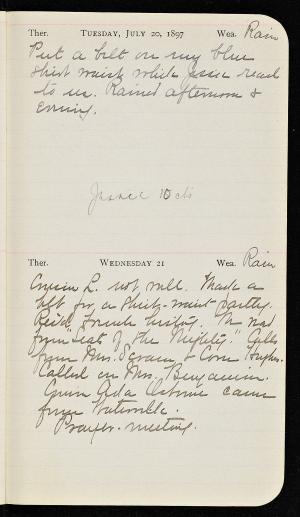 Ther. TUESDAY, JULY 20, 1897 Wea. Rain
Put a belt on my blue
shirt waist while Jessie read
to us. Rained afternoon &
evening.
Jessie 10 cts
Ther. WEDNESDAY 21 Wea. Rain
Cousin L. not well. Made a
belt for a shirt-waist partly.
from "Seats of the Mighty." Calls
from Mrs. & Cora Hughes.
Called on Mrs. Benjamin.
Cousin Osborne came
from Waterville.
Prayer-meeting.